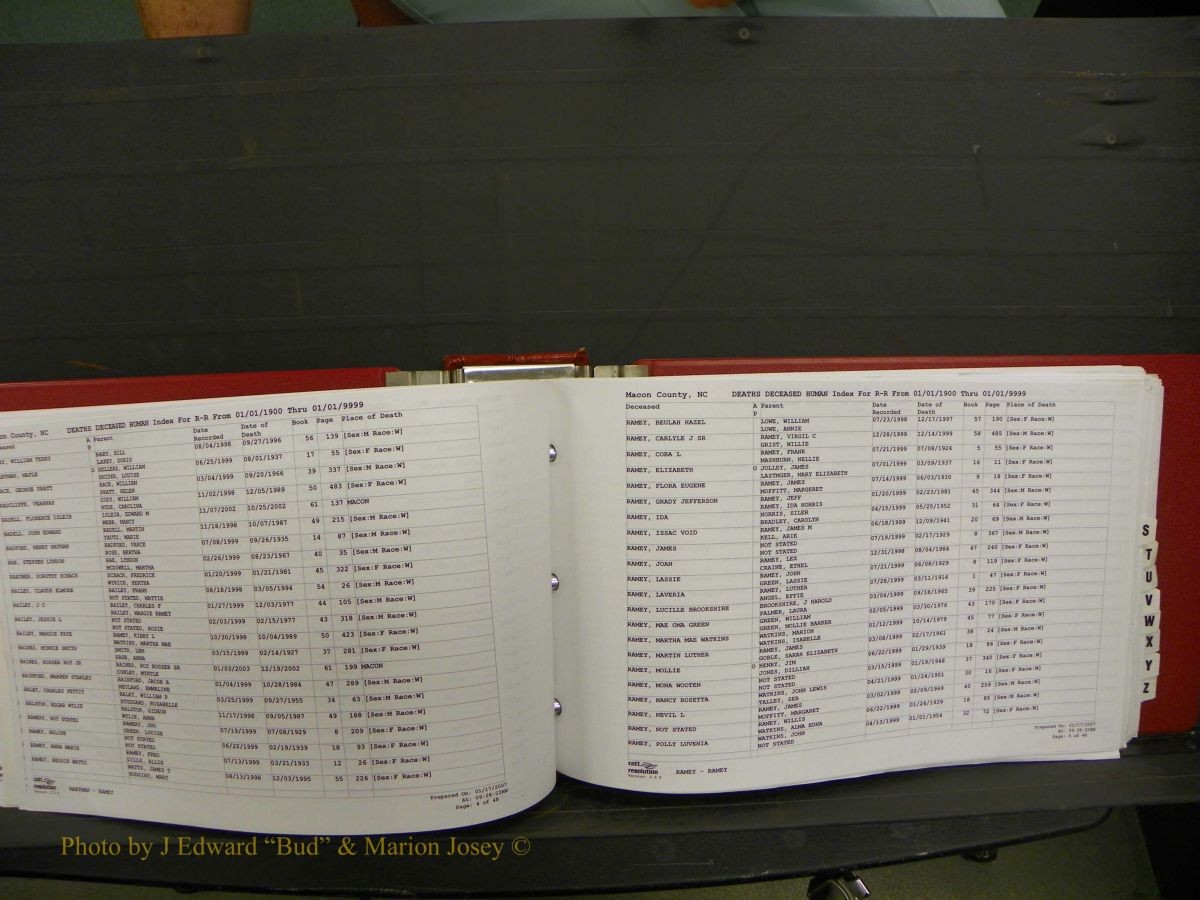 on County, NC DEATHS DECEASED HUMAN Index For R-R From 01/01/1900 Thru 01/01/9999
A Parent Date Recorded Date of Death Book Page Place of Death
P
HART, BILL 08/04/1998 09/27/1996 56 139 [Sex:M Race:W]
LAKEY, DORIS
O SELLERS, WILLIAM 06/25/1999 08/01/1937 17 55 [Sex:F Race:W]
SNIDER, LOUISE
RACE, WILLIAM 03/04/1999 09/20/1966 39 337 [Sex:M Race:W]
PRATT, HELEN
CODY, WILLIAM 11/02/1998 12/05/1989 50 483 [Sex:F Race:W]
HYDE, CAROLINA
RADELL, FLORENCE ISLEIB ISLEIB, EDWARD M 11/07/2002 10/25/2002 61 137 MACON
WEBB, NANCY
RADELL, JOHN EDWARD RADELL, MARTIN 11/18/1998 10/07/1987 49 215 [Sex:M Race:W]
YAUTS, MARIE
RADFORD, HENRY NATHAN RADFORD, VANCE 07/08/1999 09/26/1935 14 87 [Sex:M Race:W]
ROSE, BERTHA
RAE, STEPHEN LYNDON RAE, LYNDON 02/26/1999 08/23/1967 40 35 [Sex:M Race:W]
MCDOWELL, MARTHA
RAEUBER, DOROTHY SCHACH SCHACH, FREDRICK 01/20/1999 01/21/1981 45 322 [Sex:F Race:W]
WYNICH, BERTHA
RAILEY, CLAUDE ELMORE RAILEY, FRANK 08/18/1998 03/05/1994 54 26 [Sex:M Race:W]
NOT STATED, MATTIE
RAILEY, J C RAILEY, CHARLES F 01/27/1999 12/03/1977 44 105 [Sex:M Race:W]
RAILEY, MARGIE RAMEY
RAILEY, JESSIE L NOT STATED 02/03/1999 02/15/1977 43 318 [Sex:M Race:W]
NOT STATED, ROSIE
RAILEY, MARGIE FAYE RAMEY, KIRBY L 10/30/1998 10/04/1989 50 423 [Sex:F Race:W]
WATKINS, MARTHA MAE
RAINES, MINNIE SMITH SMITH, LEM 03/15/1999 02/14/1927 37 281 [Sex:F Race:W]
PAGE, ANNA
RAINES, ROSSER ROY JR RAINES, ROY ROSSER SR 01/03/2003 12/19/2002 61 199 MACON
CONLEY, MYRTLE
RAINFORD, WARREN STANLEY RAINFORD, JACOB A 01/04/1999 10/28/1984 47 289 [Sex:M Race:W]
NEULAND, EMMALINE
RALEY, CHARLES PETTIT RALEY, WILLIAM P 03/25/1999 09/27/1955 34 63 [Sex:M Race:W]
STODDARD, ROSABELLE
RALSTON, EDGAR WYLIE RALSTON, GIDEON 11/17/1998 09/05/1987 49 188 [Sex:M Race:W]
WYLIE, ANNA
RAMERY, NOT STATED RAMERY, JNO 07/19/1999 07/08/1929 8 209 [Sex:F Race:W]
GREEN, LOUISE
RAMEY, ADLINE NOT STATED 06/22/1999 02/19/1939 18 93 [Sex:F Race:W]
NOT STATED
RAMEY, ANNA MARIE RAMEY, FRED 07/13/1999 03/21/1933 12 26 [Sex:F Race:W]
DILLS, ALLIE
RAMEY, BESSIE WATTS WATTS, JAMES T 08/13/1998 12/03/1995 55 226 [Sex:F Race:W]
HODGINS, MARY
cott resolution
RABYMAN - RAMEY
Prepared On: 01/17/2007
At: 09:28:22AM
Page: 4 of 48
Macon County, NC DEATHS DECEASED HUMAN Index For R-R From 01/01/1900 Thru 01/01/9999
Deceased A Parent Date Recorded Date of Death Book Page Place of Death
P
RAMEY, BEULAH HAZEL LOWE, WILLIAM 07/23/1998 12/17/1997 57 190 [Sex:F Race:W]
LOWE, ANNIE
RAMEY, CARLYLE J SR RAMEY, VIRGIL C 12/28/1999 12/14/1999 58 485 [Sex:M Race:W]
GRIST, WILLIE
RAMEY, CORA L RAMEY, FRANK 07/21/1999 07/08/1924 5 55 [Sex:F Race:W]
MASHBURN, NELLIE
RAMEY, ELIZABETH O JOLLEY, JAMES 07/01/1999 03/09/1937 16 11 [Sex:F Race:W]
LASTMGER, MARY ELIZABETH
RAMEY, FLORA EUGENE RAMEY, JAMES 07/14/1999 06/03/1930 9 18 [Sex:F Race:W]
MOFFITT, MARGERET
RAMEY, GRADY JEFFERSON RAMEY, JEFF 01/20/1999 02/23/1981 45 344 [Sex:M Race:W]
RAMEY, IDA NORRIS
RAMEY, IDA NORRIS, SILER 04/15/1999 05/25/1952 31 64 [Sex:F Race:W]
BRADLEY, CAROLYN
RAMEY, ISSAC VOID RAMEY, JAMES M 06/18/1999 12/09/1941 20 69 [Sex:M Race:W]
KELL, ARIE
RAMEY, JAMES NOT STATED 07/19/1999 02/17/1929 8 367 [Sex:M Race:W]
NOT STATED
RAMEY, JOAN RAMEY, LEX 12/31/1998 08/04/1984 47 240 [Sex:F Race:W]
CRAINE, ETHEL
RAMEY, LASSIE RAMEY, JOHN 07/21/1999 06/08/1929 8 119 [Sex:F Race:W]
GREEN, LASSIE
RAMEY, LAVERIA RAMEY, LUTHER 07/28/1999 03/11/1914 1 47 [Sex:F Race:W]
ANGEL, EFFIE
RAMEY, LUCILLE BROOKSHIRE BROOKSHIRE, J HAROLD 03/04/1999 09/18/1965 39 225 [Sex:F Race:W]
PALMER, LAURA
RAMEY, MAE OMA GREEN GREEN, WILLIAM 02/05/1999 03/30/1976 43 170 [Sex:F Race:W]
GREEN, MOLLIE BARKER
RAMEY, MARTHA MAE WATKINS WATKINS, MARION 01/12/1999 10/14/1979 45 77 [Sex:F Race:W]
WATKINS, ISABELLE
RAMEY, MARTIN LUTHER RAMEY, JAMES 03/08/1999 02/17/1961 38 24 [Sex:M Race:W]
GOBLE, SARAH ELIZABETH
RAMEY, MOLLIE O HENRY, JIM 06/22/1999 01/29/1939 18 86 [Sex:F Race:W]
JONES, DILLIAN
RAMEY, MONA WOOTEN NOT STATED 03/15/1999 01/19/1948 37 340 [Sex:F Race:W]
NOT STATED
RAMEY, NANCY ROSETTA WATKINS, JOHN LEWIS 04/21/1999 01/24/1951 30 16 [Sex:F Race:W]
TALLEY, SEB
RAMEY, NEVIL L RAMEY, JAMES 03/02/1999 02/09/1969 40 259 [Sex:M Race:W]
MOFFITT, MARGARET
RAMEY, NOT STATED RAMEY, WILLIS 06/22/1999 01/24/1939 18 85 [Sex:M Race:W]
WATKINS, ALMA EDNA
RAMEY, POLLY LUVENIA WATKINS, JOHN 04/13/1999 01/01/1954 32 72 [Sex:F Race:W]
NOT STATED
cott resolution
RAMEY - RAMEY
Prepared On: 01/17/2007
At: 09:28:22AM
Page: 5 of 48
S
T
U
V
W
X
Y
Z
Photo by J Edward “Bud” & Marion Josey ©